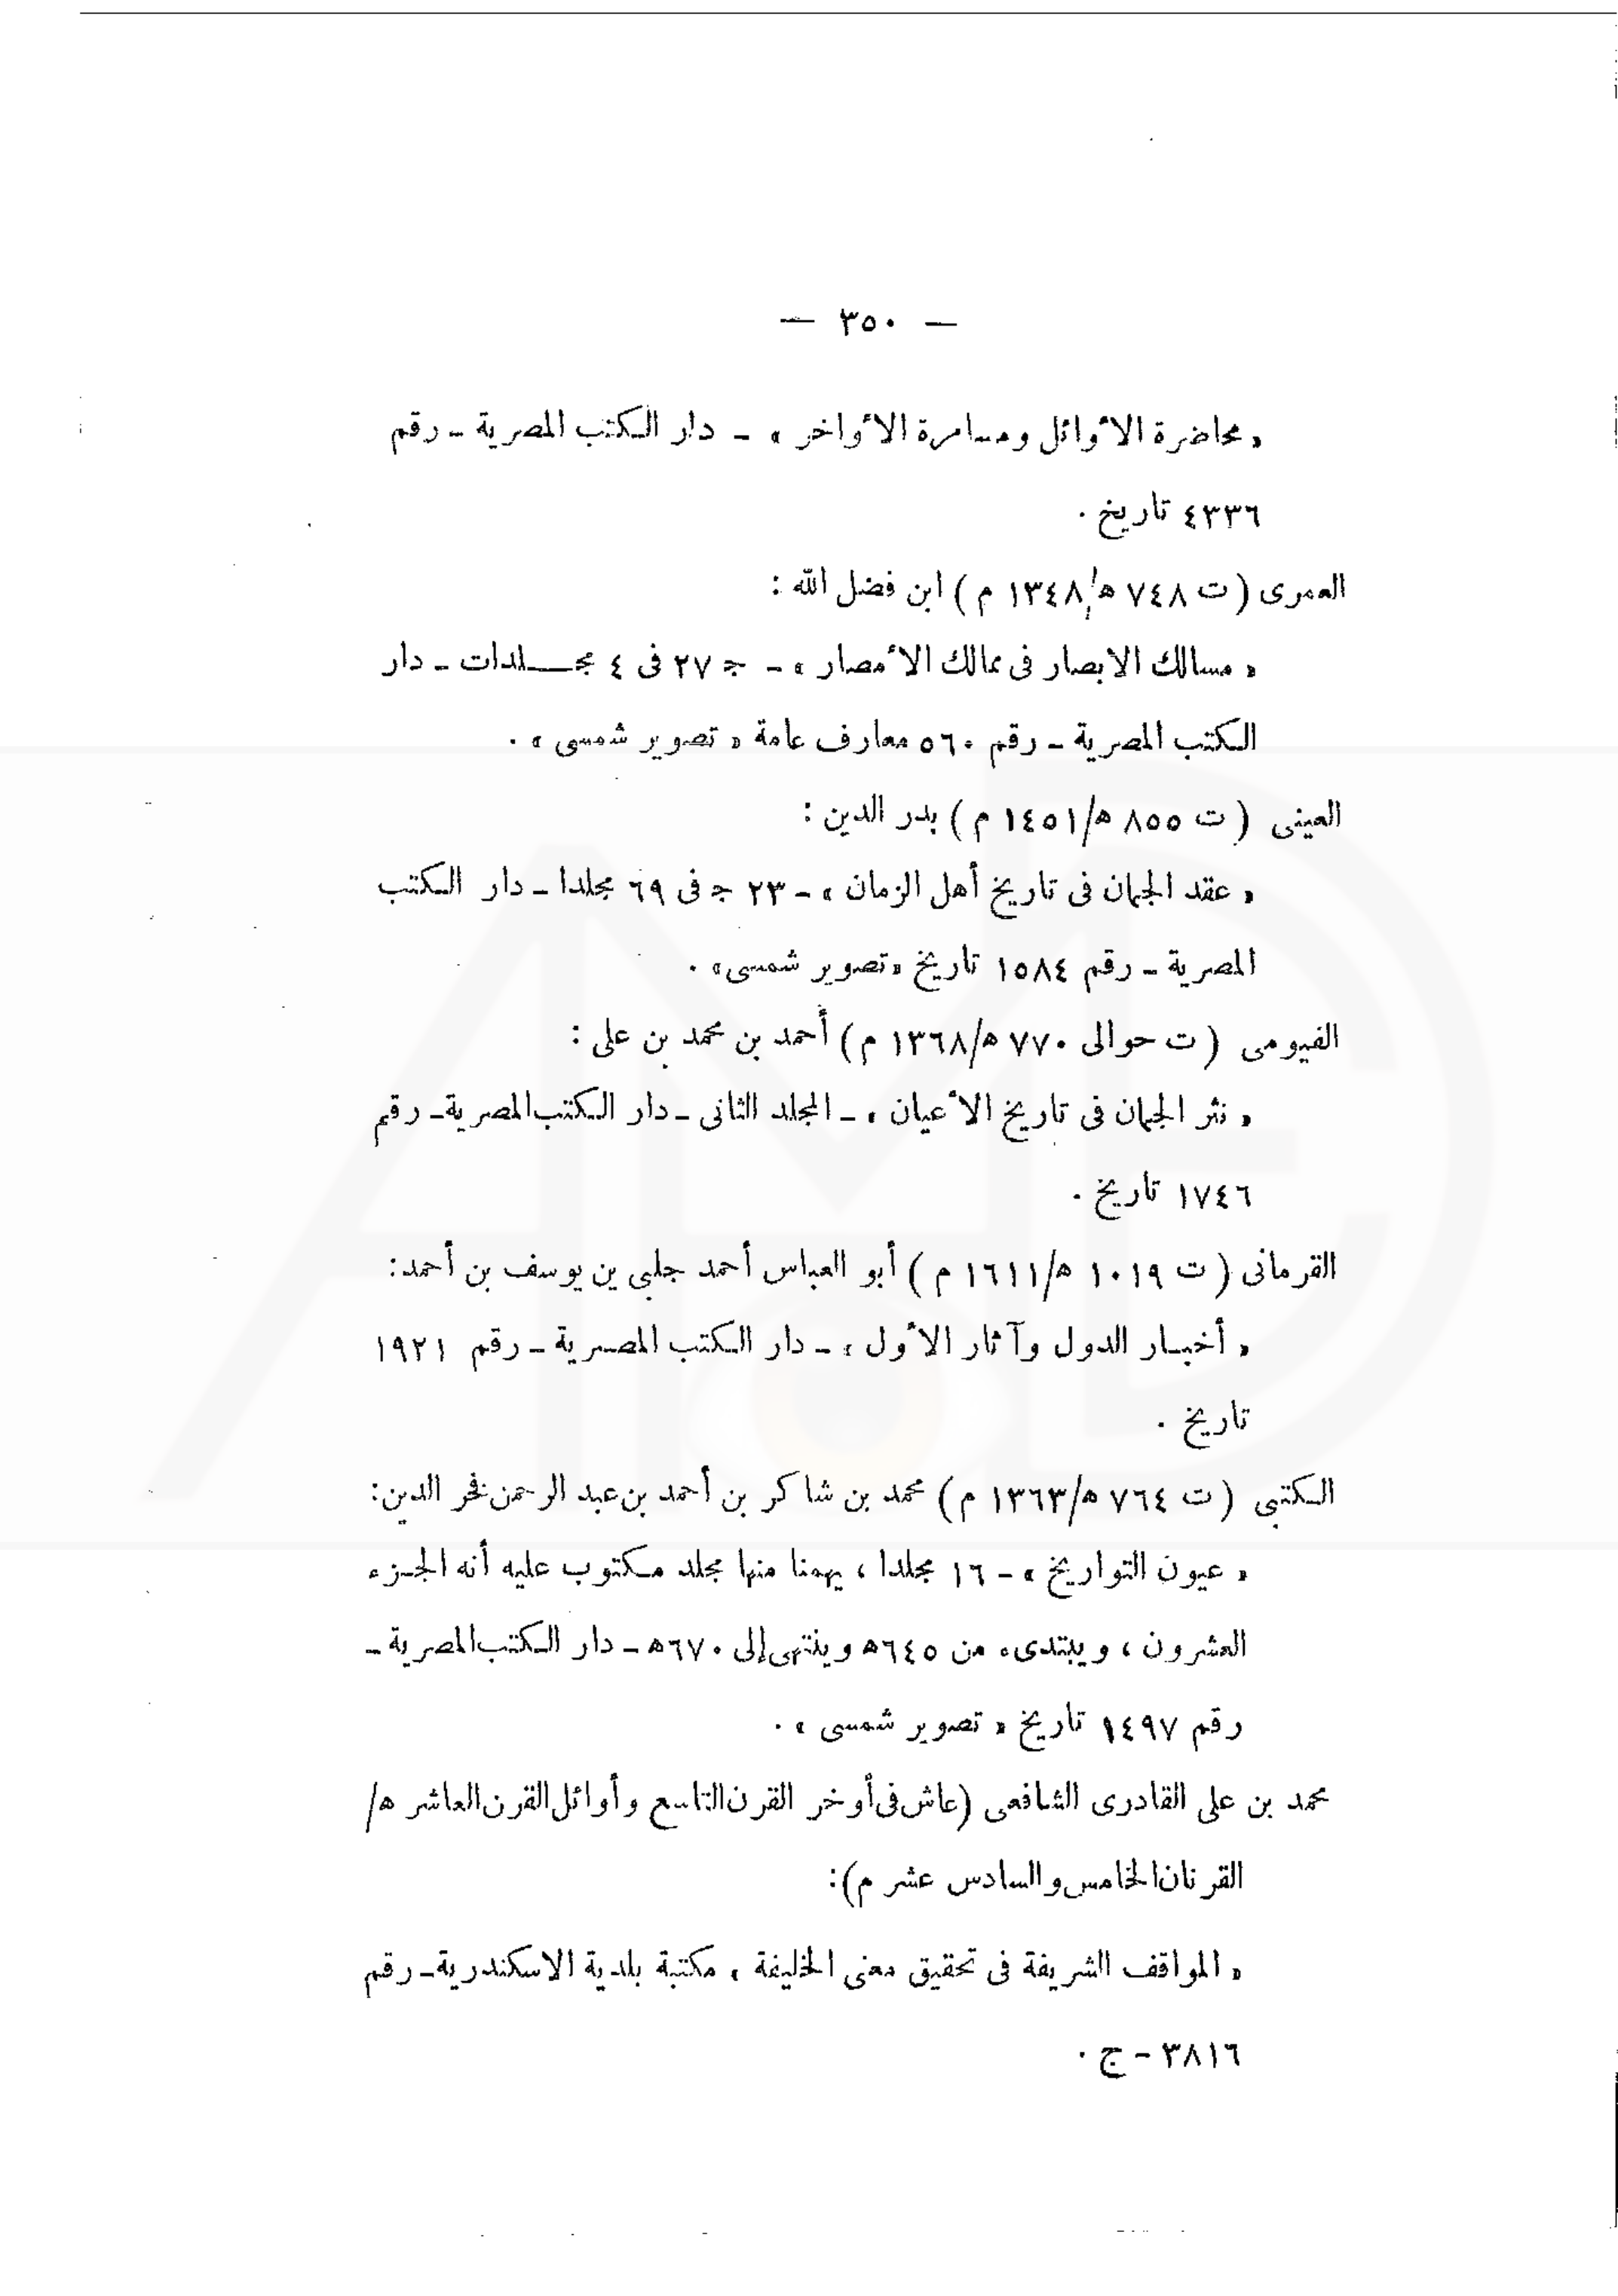 — ٣٥٠ —
« محاضرة الأوائل ومسامرة الأواخر » - دار الكتب المصرية - رقم
٤٣٣٦ تاريخ .
العمرى ( ت ٧٤٨ ه/١٣٤٨ م ) ابن فضل الله :
« مسالك الابصار فى ممالك الأمصار » - ج ٢٧ فى ٤ مجـلدات - دار
الكتب المصرية - رقم ٥٦٠ معارف عامة « تصوير شمسى » .
العينى ( ت ٨٥٥ ه/١٤٥١ م ) بدر الدين :
« عقد الجمان فى تاريخ أهل الزمان » - ٢٣ ج فى ٦٩ مجلدا - دار الكتب
المصرية - رقم ١٥٨٤ تاريخ «تصوير شمسى» .
الفيومى ( ت حوالى ٧٧٠ ه/١٣٦٨ م ) أحمد بن محمد بن على :
« نثر الجمان فى تاريخ الأعيان » - المجلد الثانى - دار الكتب المصرية - رقم
١٧٤٦ تاريخ .
القرمانى ( ت ١٠١٩ ه/١٦١١ م ) أبو العباس أحمد جلبى بن يوسف بن أحمد:
« أخبـار الدول وآثار الأول » - دار الكتب المصرية - رقم ١٩٢١
تاريخ .
الكتبى ( ت ٧٦٤ ه/١٣٦٣ م ) محمد بن شاكر بن أحمد بن عبد الرحمن فخر الدين:
« عيون التواريخ » - ١٦ مجلدا ، يهمنا منها مجلد مكتوب عليه أنه الجـزء
العشرون ، ويبتدىء من ٦٤٥ه وينتهى إلى ٦٧٠ه - دار الكتب المصرية -
رقم ١٤٩٧ تاريخ « تصوير شمسى » .
محمد بن على القادرى الشافعى (عاش فى أوخر القرن التاسع وأوائل القرن العاشر ه/
القرنان الخامس والسادس عشر م):
« المواقف الشريفة فى تحقيق معنى الخليفة » مكتبة بلدية الاسكندرية - رقم
٣٨١٦ - ج .
AMED